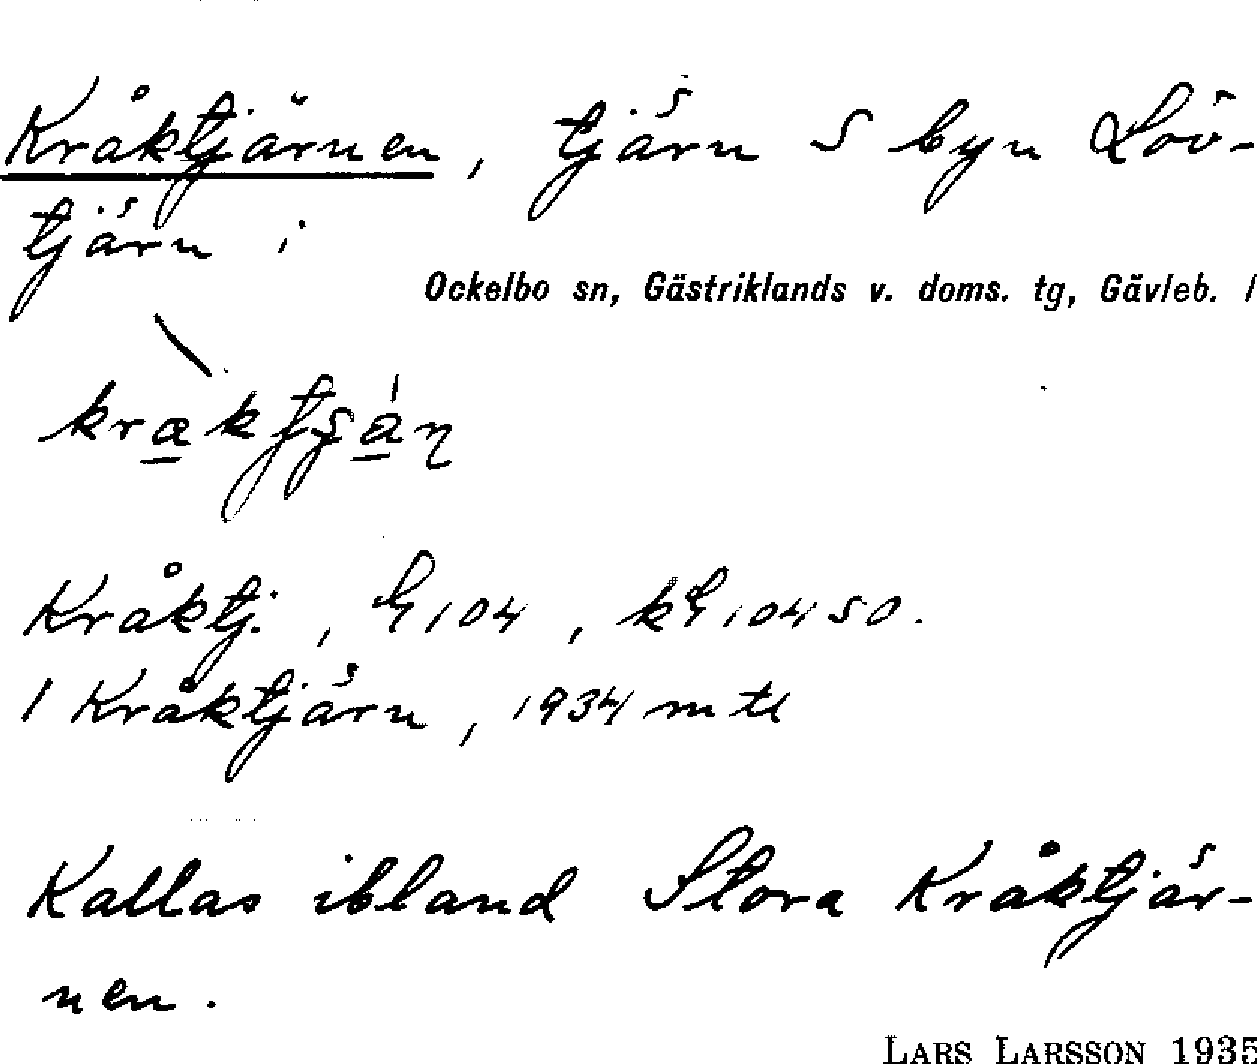 Kråktjärnen, tjärn S byn Löv-
tjärn i
Ockelbo sn, Gästriklands v. doms. tg, Gävleb. l
Kråktj., 104, 104 SO.
1 Kråktjärn, 1934 mtl
Kallas ibland Stora Kråktjär-
nen.
LARS LARSSON 1935